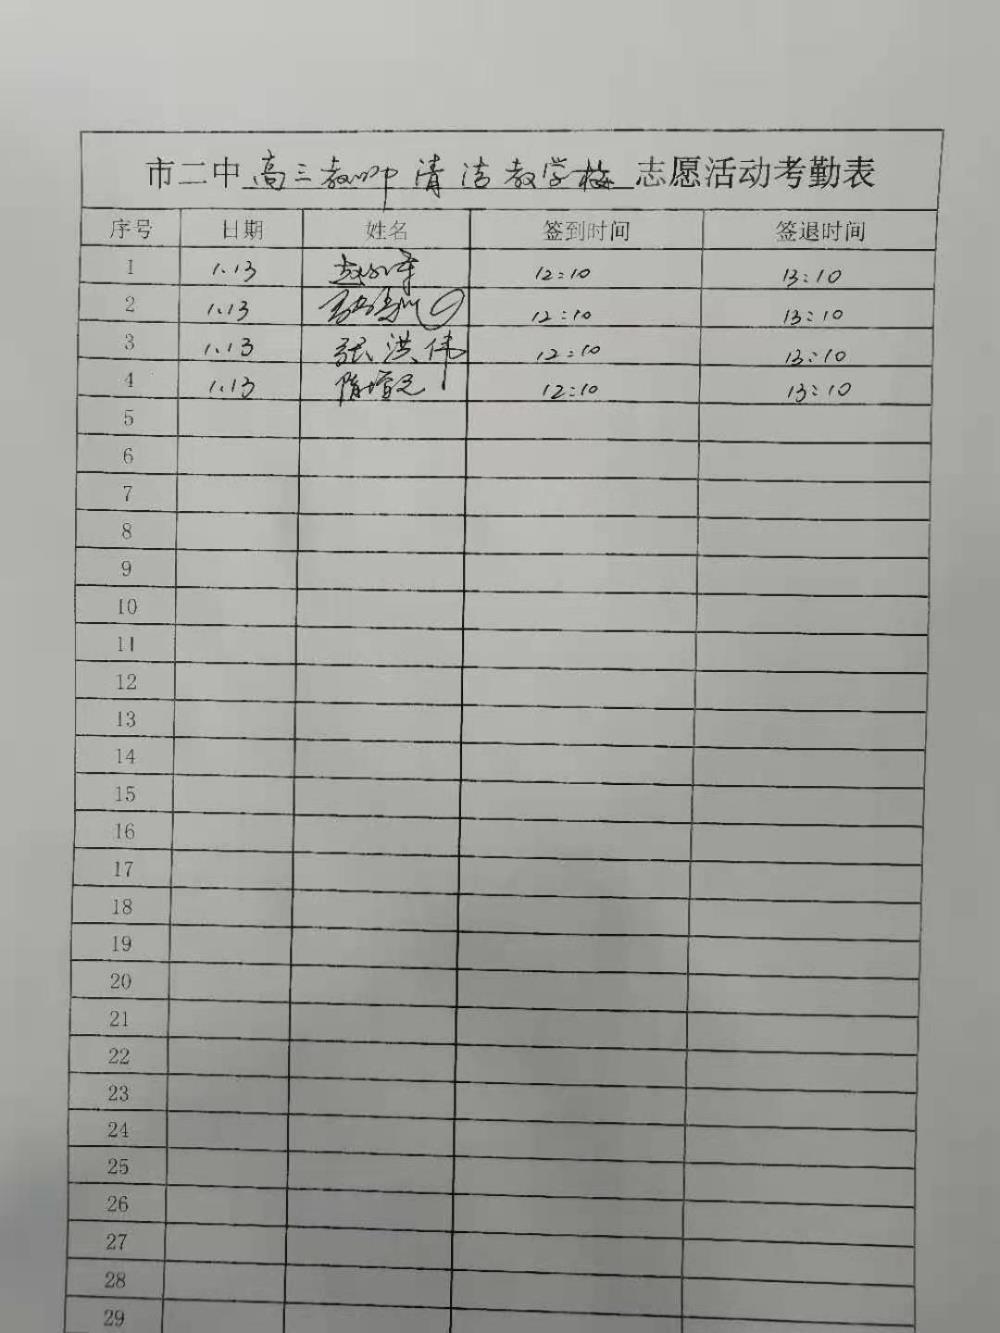 市二中高三教师清洁教学楼志愿活动考勤表
序号 日期 姓名 签到时间 签退时间
1 1.13 12:10 13:10
2 1.13 12:10 13:10
3 1.13 张洪伟 12:10 13:10
4 1.13 12:10 13:10
5
6
7
8
9
10
11
12
13
14
15
16
17
18
19
20
21
22
23
24
25
26
27
28
29